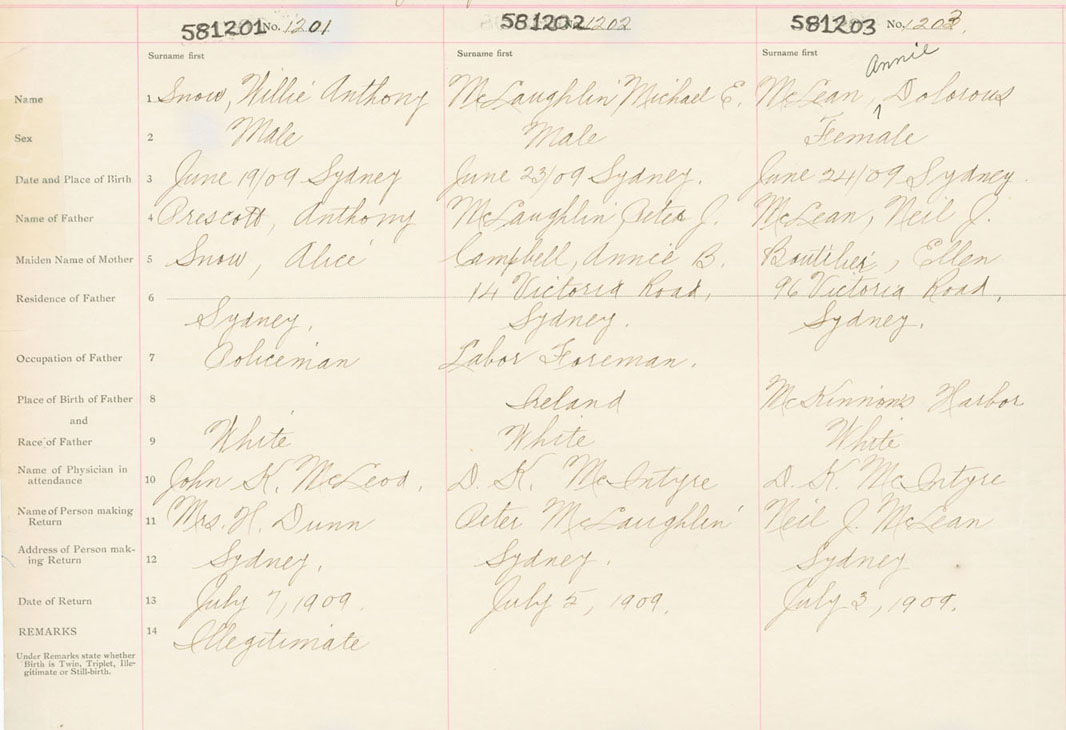 581201 No. 1201 581202 No. 1202 581203 No. 1203.
Surname first Surname first Surname first
Annie
Name 1 Snow, Willie Anthony McLaughlin Michael E. McLean, Dolorous
Sex 2 Male Male Female
Date and Place of Birth 3 June 19/09 Sydney June 23/09 Sydney. June 24/09 Sydney.
Name of Father 4 Prescott, Anthony McLaughlin Peter J. McLean, Neil J.
Maiden Name of Mother 5 Snow, Alice Campbell, Annie B. Boutilier, Ellen
Residence of Father 6 14 Victoria Road, 96 Victoria Road,
Sydney. Sydney. Sydney.
Occupation of Father 7 Policeman Labor Foreman.
Place of Birth of Father 8 Ireland McKinnons Harbor
and
Race of Father 9 White White White
Name of Physician in
attendance 10 John K. McLeod. D. K. McIntyre D. K. McIntyre
Name of Person making
Return 11 Mrs. H. Dunn Peter McLaughlin Neil J. McLean
Address of Person mak-
ing Return 12 Sydney. Sydney. Sydney
Date of Return 13 July 7, 1909. July 5, 1909. July 3, 1909.
REMARKS 14 Illegitimate
Under Remarks state whether
Birth is Twin, Triplet, Ille-
gitimate or Still-birth.